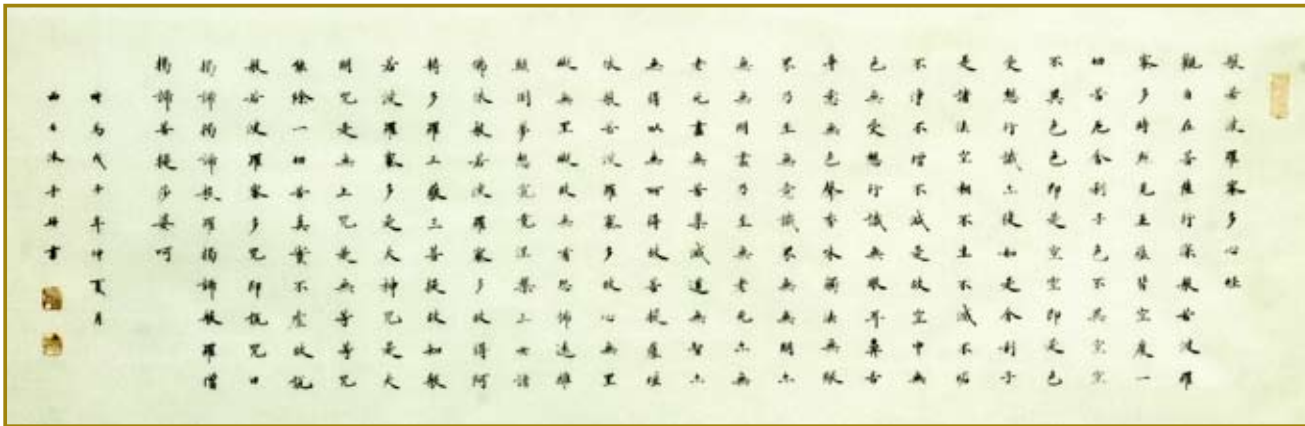 般若波羅蜜多心經
觀自在菩薩行深般若波羅
蜜多時照見五蘊皆空度一
切苦厄舍利子色不異空空
不異色色即是空空即是色
受想行識亦復如是舍利子
是諸法空相不生不滅不垢
不淨不增不減是故空中無
色無受想行識無眼耳鼻舌
身意無色聲香味觸法無眼
界乃至無意識界無無明亦
無無明盡乃至無老死亦無
老死盡無苦集滅道無智亦
無得以無所得故菩提薩埵
依般若波羅蜜多故心無罣
礙無罣礙故無有恐怖遠離
顛倒夢想究竟涅槃三世諸
佛依般若波羅蜜多故得阿
耨多羅三藐三菩提故知般
若波羅蜜多是大神咒是大
明咒是無上咒是無等等咒
能除一切苦真實不虛故說
般若波羅蜜多咒即說咒曰
揭諦揭諦般羅揭諦般羅僧
揭諦菩提莎婆呵
年仲夏月
書